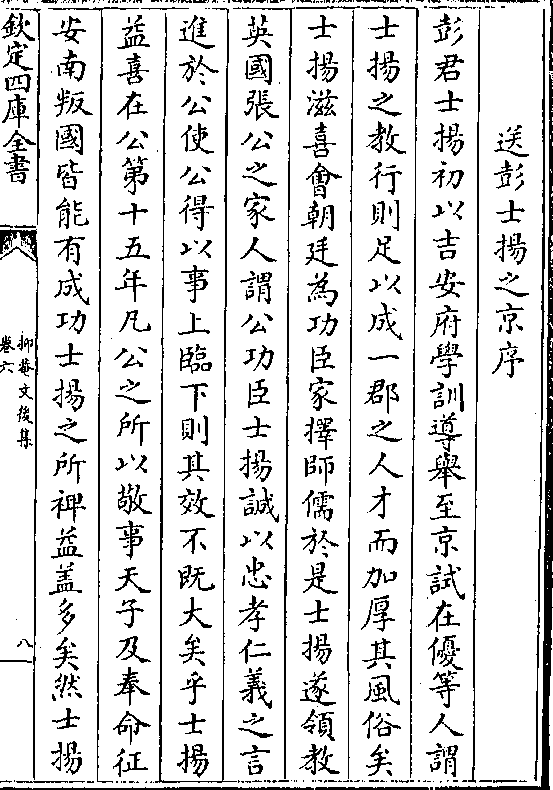 送彭士揚之京序
彭君士揚初以吉安府學訓導舉至京試在優等人謂
士揚之教行則足以成一郡之人才而加厚其風俗矣
士揚滋喜會朝廷為功臣家擇師儒於是士揚遂領教
英國張公之家人謂公功臣士揚誠以忠孝仁義之言
進於公使公得以事上臨下則其效不既大矣乎士揚
益喜在公第十五年凡公之所以敬事天子及奉命征
安南叛國皆能有成功士揚之所裨益盖多矣然士揚
欽定四庫全書
抑菴文後集
卷六
八